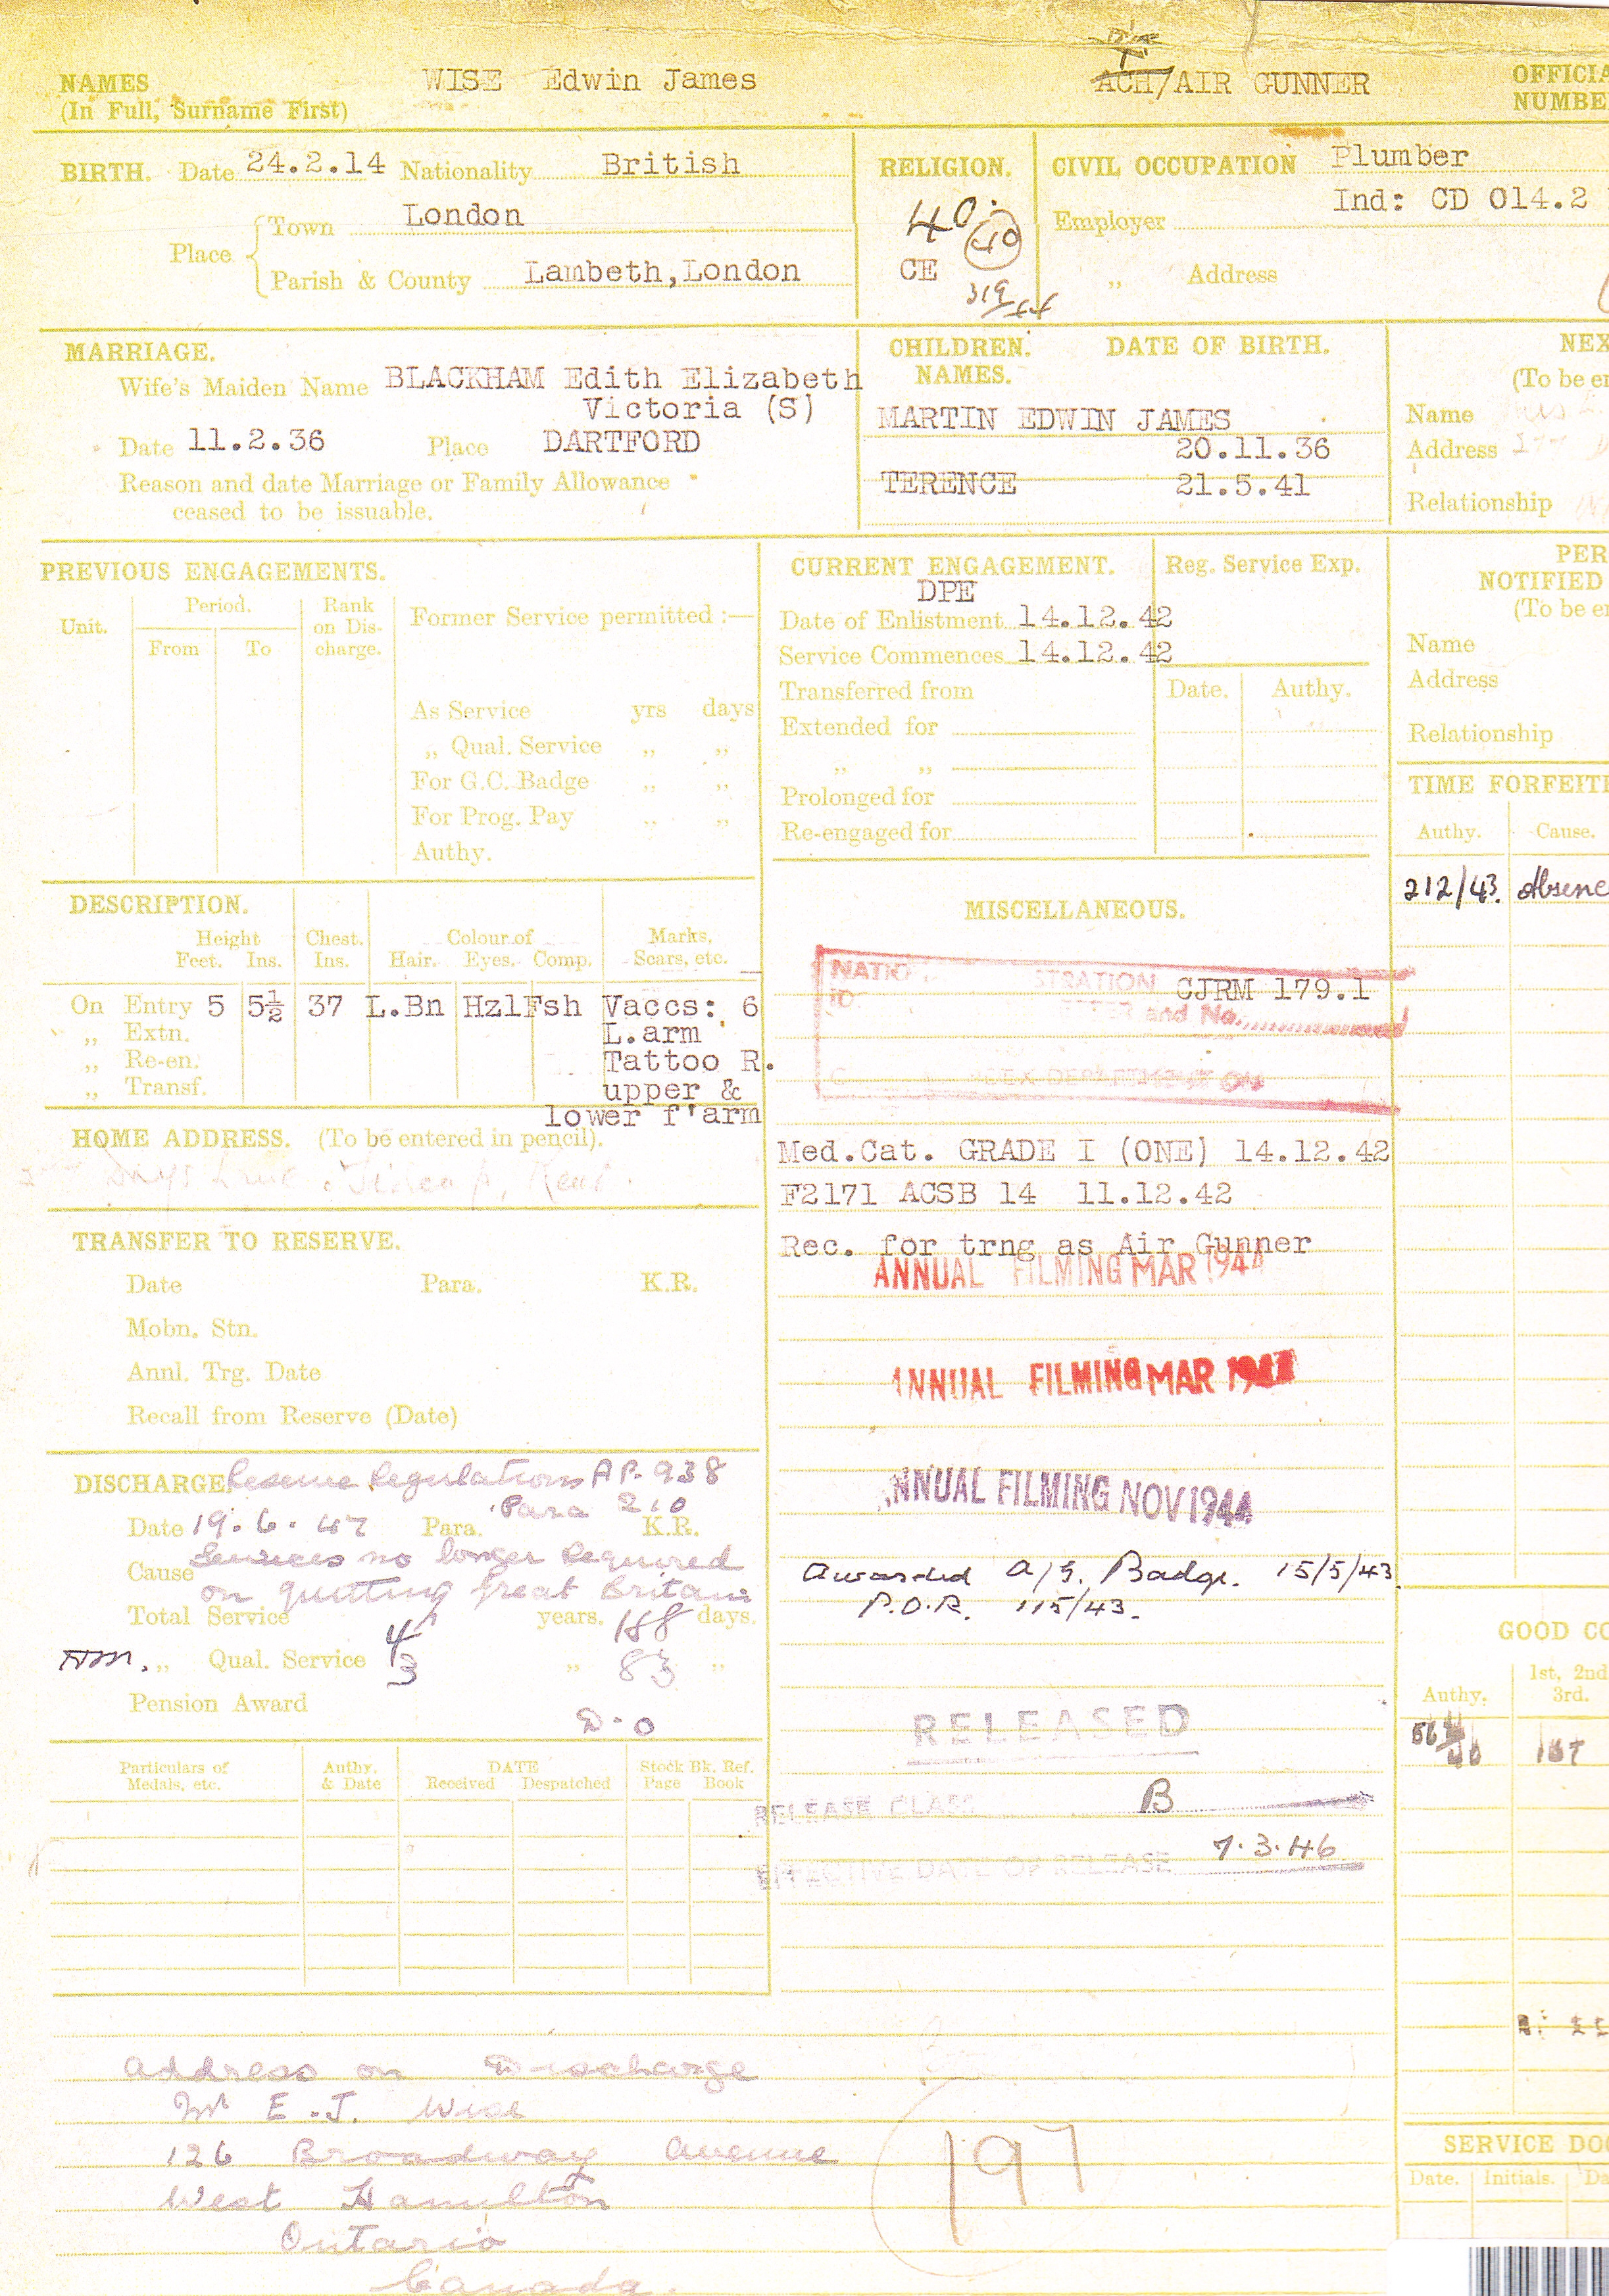 NAMES WISE Edwin James ACH/AIR GUNNER OFFICIA
(In Full, Surname First) NUMBE
BIRTH. Date 24.2.14 Nationality British
Place Town London
Parish & County Lambeth, London
RELIGION.
40.
40
CE
CIVIL OCCUPATION Plumber
Ind: CD 014.2
Employer
„ Address
MARRIAGE.
Wife's Maiden Name BLACKHAM Edith Elizabeth
Victoria (S)
Date 11.2.36 Place DARTFORD
Reason and date Marriage or Family Allowance
ceased to be issuable.
CHILDREN. DATE OF BIRTH.
NAMES.
MARTIN EDWIN JAMES
20.11.36
TERENCE 21.5.41
NEX
(To be en
Name
Address
Relationship
PREVIOUS ENGAGEMENTS.
Unit. Period. Rank on Dis- charge.
From To
Former Service permitted :—
As Service yrs days
„ Qual. Service „ „
For G.C. Badge „ „
For Prog. Pay „ „
Authy.
CURRENT ENGAGEMENT. Reg. Service Exp.
DPE
Date of Enlistment 14.12.42
Service Commences 14.12.42
Transferred from Date. Authy.
Extended for
„ „
Prolonged for
Re-engaged for
PER
NOTIFIED
(To be en
Name
Address
Relationship
TIME FORFEIT
Authy. Cause.
212/43. Absenc
DESCRIPTION.
Height Chest. Colour of Marks,
Feet. Ins. Ins. Hair. Eyes. Comp. Scars, etc.
On Entry 5 5½ 37 L.Bn Hzl Fsh Vaccs: 6
„ Extn. L.arm
„ Re-en. Tattoo R.
„ Transf. upper &
lower f'arm
HOME ADDRESS. (To be entered in pencil).
Days Lane, Sidcup, Kent.
TRANSFER TO RESERVE.
Date Para. K.R.
Mobn. Stn.
Annl. Trg. Date
Recall from Reserve (Date)
DISCHARGE Reserve Regulations AP. 938
Para 210
Date 19.6.47 Para. K.R.
Cause Services no longer Required
on quitting Great Britain
Total Service 4 years. 188 days.
„ Qual. Service 3 „ 83 „
Pension Award
D.O
Particulars of Medals, etc. Authy. & Date DATE Stock Bk. Ref.
Received Despatched Page Book
MISCELLANEOUS.
CJRM 179.1
and No.
Med.Cat. GRADE I (ONE) 14.12.42
F2171 ACSB 14 11.12.42
Rec. for trng as Air Gunner
ANNUAL FILMING MAR 1944
ANNUAL FILMING MAR
ANNUAL FILMING NOV 1944
Awarded A/G. Badge. 15/5/43.
P.O.R. 115/43.
RELEASED
RELEASE CLASS B
EFFECTIVE DATE OF RELEASE 7.3.46
GOOD CO
Authy. 1st, 2nd
3rd.
1ST
Address on Discharge
Mr E.J. Wise
126 Broadway Avenue
West Hamilton
Ontario
Canada.
197
SERVICE DOC
Date. Initials. Da